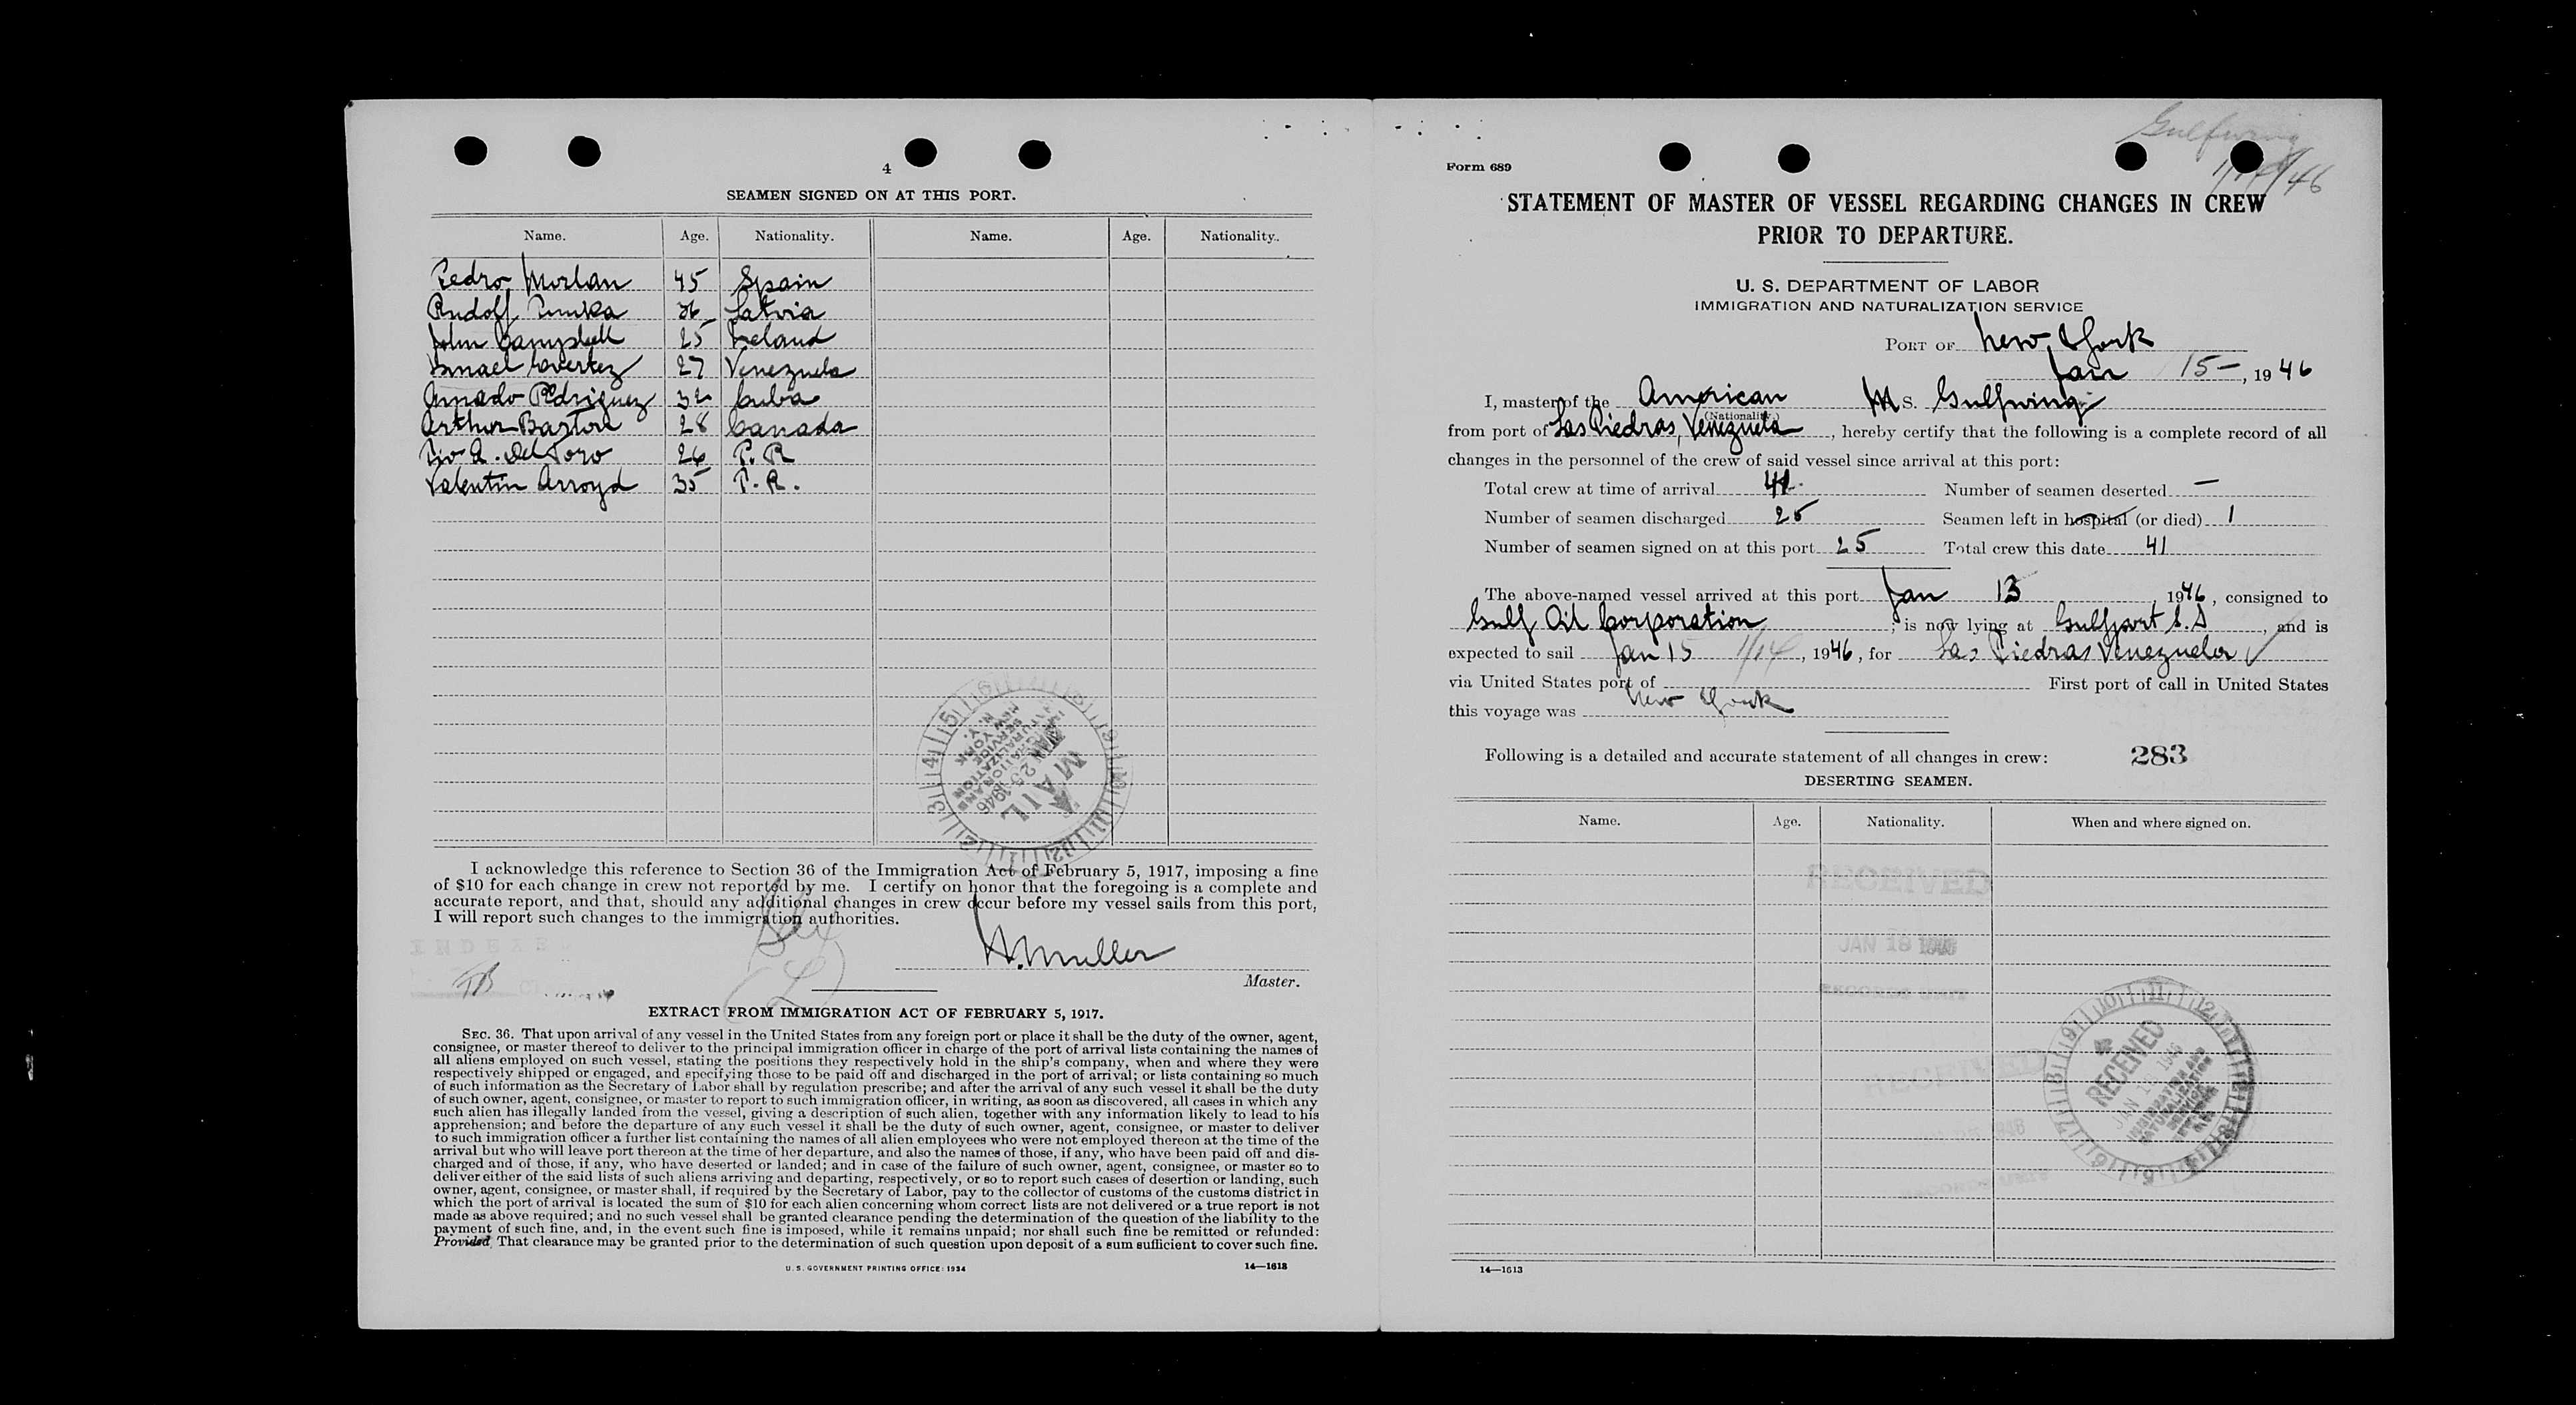 4
SEAMEN SIGNED ON AT THIS PORT.
Name. Age. Nationality. Name. Age. Nationality.
Pedro Morlan 45 Spain
Rudolf 36 Latvia
John Campbell 25 Ireland
Ismael 27 Venezuela
Amado Rodriguez 32 Cuba
Arthur Barton 28 Canada
Pio A. Del Toro 26 P.R
Valentin Arroyo 35 P.R.
MAIL
JAN 25 1946
IMMIGRATION AND
NATURALIZATION
SERVICE
NEW YORK
N. Y.
I acknowledge this reference to Section 36 of the Immigration Act of February 5, 1917, imposing a fine
of $10 for each change in crew not reported by me. I certify on honor that the foregoing is a complete and
accurate report, and that, should any additional changes in crew occur before my vessel sails from this port,
I will report such changes to the immigration authorities.
A. Muller
Master.
EXTRACT FROM IMMIGRATION ACT OF FEBRUARY 5, 1917.
SEC. 36. That upon arrival of any vessel in the United States from any foreign port or place it shall be the duty of the owner, agent,
consignee, or master thereof to deliver to the principal immigration officer in charge of the port of arrival lists containing the names of
all aliens employed on such vessel, stating the positions they respectively hold in the ship's company, when and where they were
respectively shipped or engaged, and specifying those to be paid off and discharged in the port of arrival; or lists containing so much
of such information as the Secretary of Labor shall by regulation prescribe; and after the arrival of any such vessel it shall be the duty
of such owner, agent, consignee, or master to report to such immigration officer, in writing, as soon as discovered, all cases in which any
such alien has illegally landed from the vessel, giving a description of such alien, together with any information likely to lead to his
apprehension; and before the departure of any such vessel it shall be the duty of such owner, agent, consignee, or master to deliver
to such immigration officer a further list containing the names of all alien employees who were not employed thereon at the time of the
arrival but who will leave port thereon at the time of her departure, and also the names of those, if any, who have been paid off and dis-
charged and of those, if any, who have deserted or landed; and in case of the failure of such owner, agent, consignee, or master so to
deliver either of the said lists of such aliens arriving and departing, respectively, or so to report such cases of desertion or landing, such
owner, agent, consignee, or master shall, if required by the Secretary of Labor, pay to the collector of customs of the customs district in
which the port of arrival is located the sum of $10 for each alien concerning whom correct lists are not delivered or a true report is not
made as above required; and no such vessel shall be granted clearance pending the determination of the question of the liability to the
payment of such fine, and, in the event such fine is imposed, while it remains unpaid; nor shall such fine be remitted or refunded:
Provided, That clearance may be granted prior to the determination of such question upon deposit of a sum sufficient to cover such fine.
U. S. GOVERNMENT PRINTING OFFICE: 1934 14—1613
Gulfwing
1/14/46
Form 689
STATEMENT OF MASTER OF VESSEL REGARDING CHANGES IN CREW
PRIOR TO DEPARTURE.
U. S. DEPARTMENT OF LABOR
IMMIGRATION AND NATURALIZATION SERVICE
PORT OF New York
Jan 15-, 1946
I, master of the American M S. Gulfwing
(Nationality.)
from port of Las Piedras, Venezuela, hereby certify that the following is a complete record of all
changes in the personnel of the crew of said vessel since arrival at this port:
Total crew at time of arrival 41 Number of seamen deserted —
Number of seamen discharged 25 Seamen left in hospital (or died) 1
Number of seamen signed on at this port 25 Total crew this date 41
The above-named vessel arrived at this port Jan 13, 1946, consigned to
Gulf Oil Corporation; is now lying at Gulfport S.I, and is
expected to sail Jan 15 1/14, 1946, for Las Piedras Venezuela
via United States port of First port of call in United States
this voyage was New York
Following is a detailed and accurate statement of all changes in crew: 283
DESERTING SEAMEN.
Name. Age. Nationality. When and where signed on.
RECEIVED
JAN 18 1946
RECORDS UNIT
RECEIVED
RECEIVED
IMMIGRATION AND
NATURALIZATION
SERVICE
14—1613